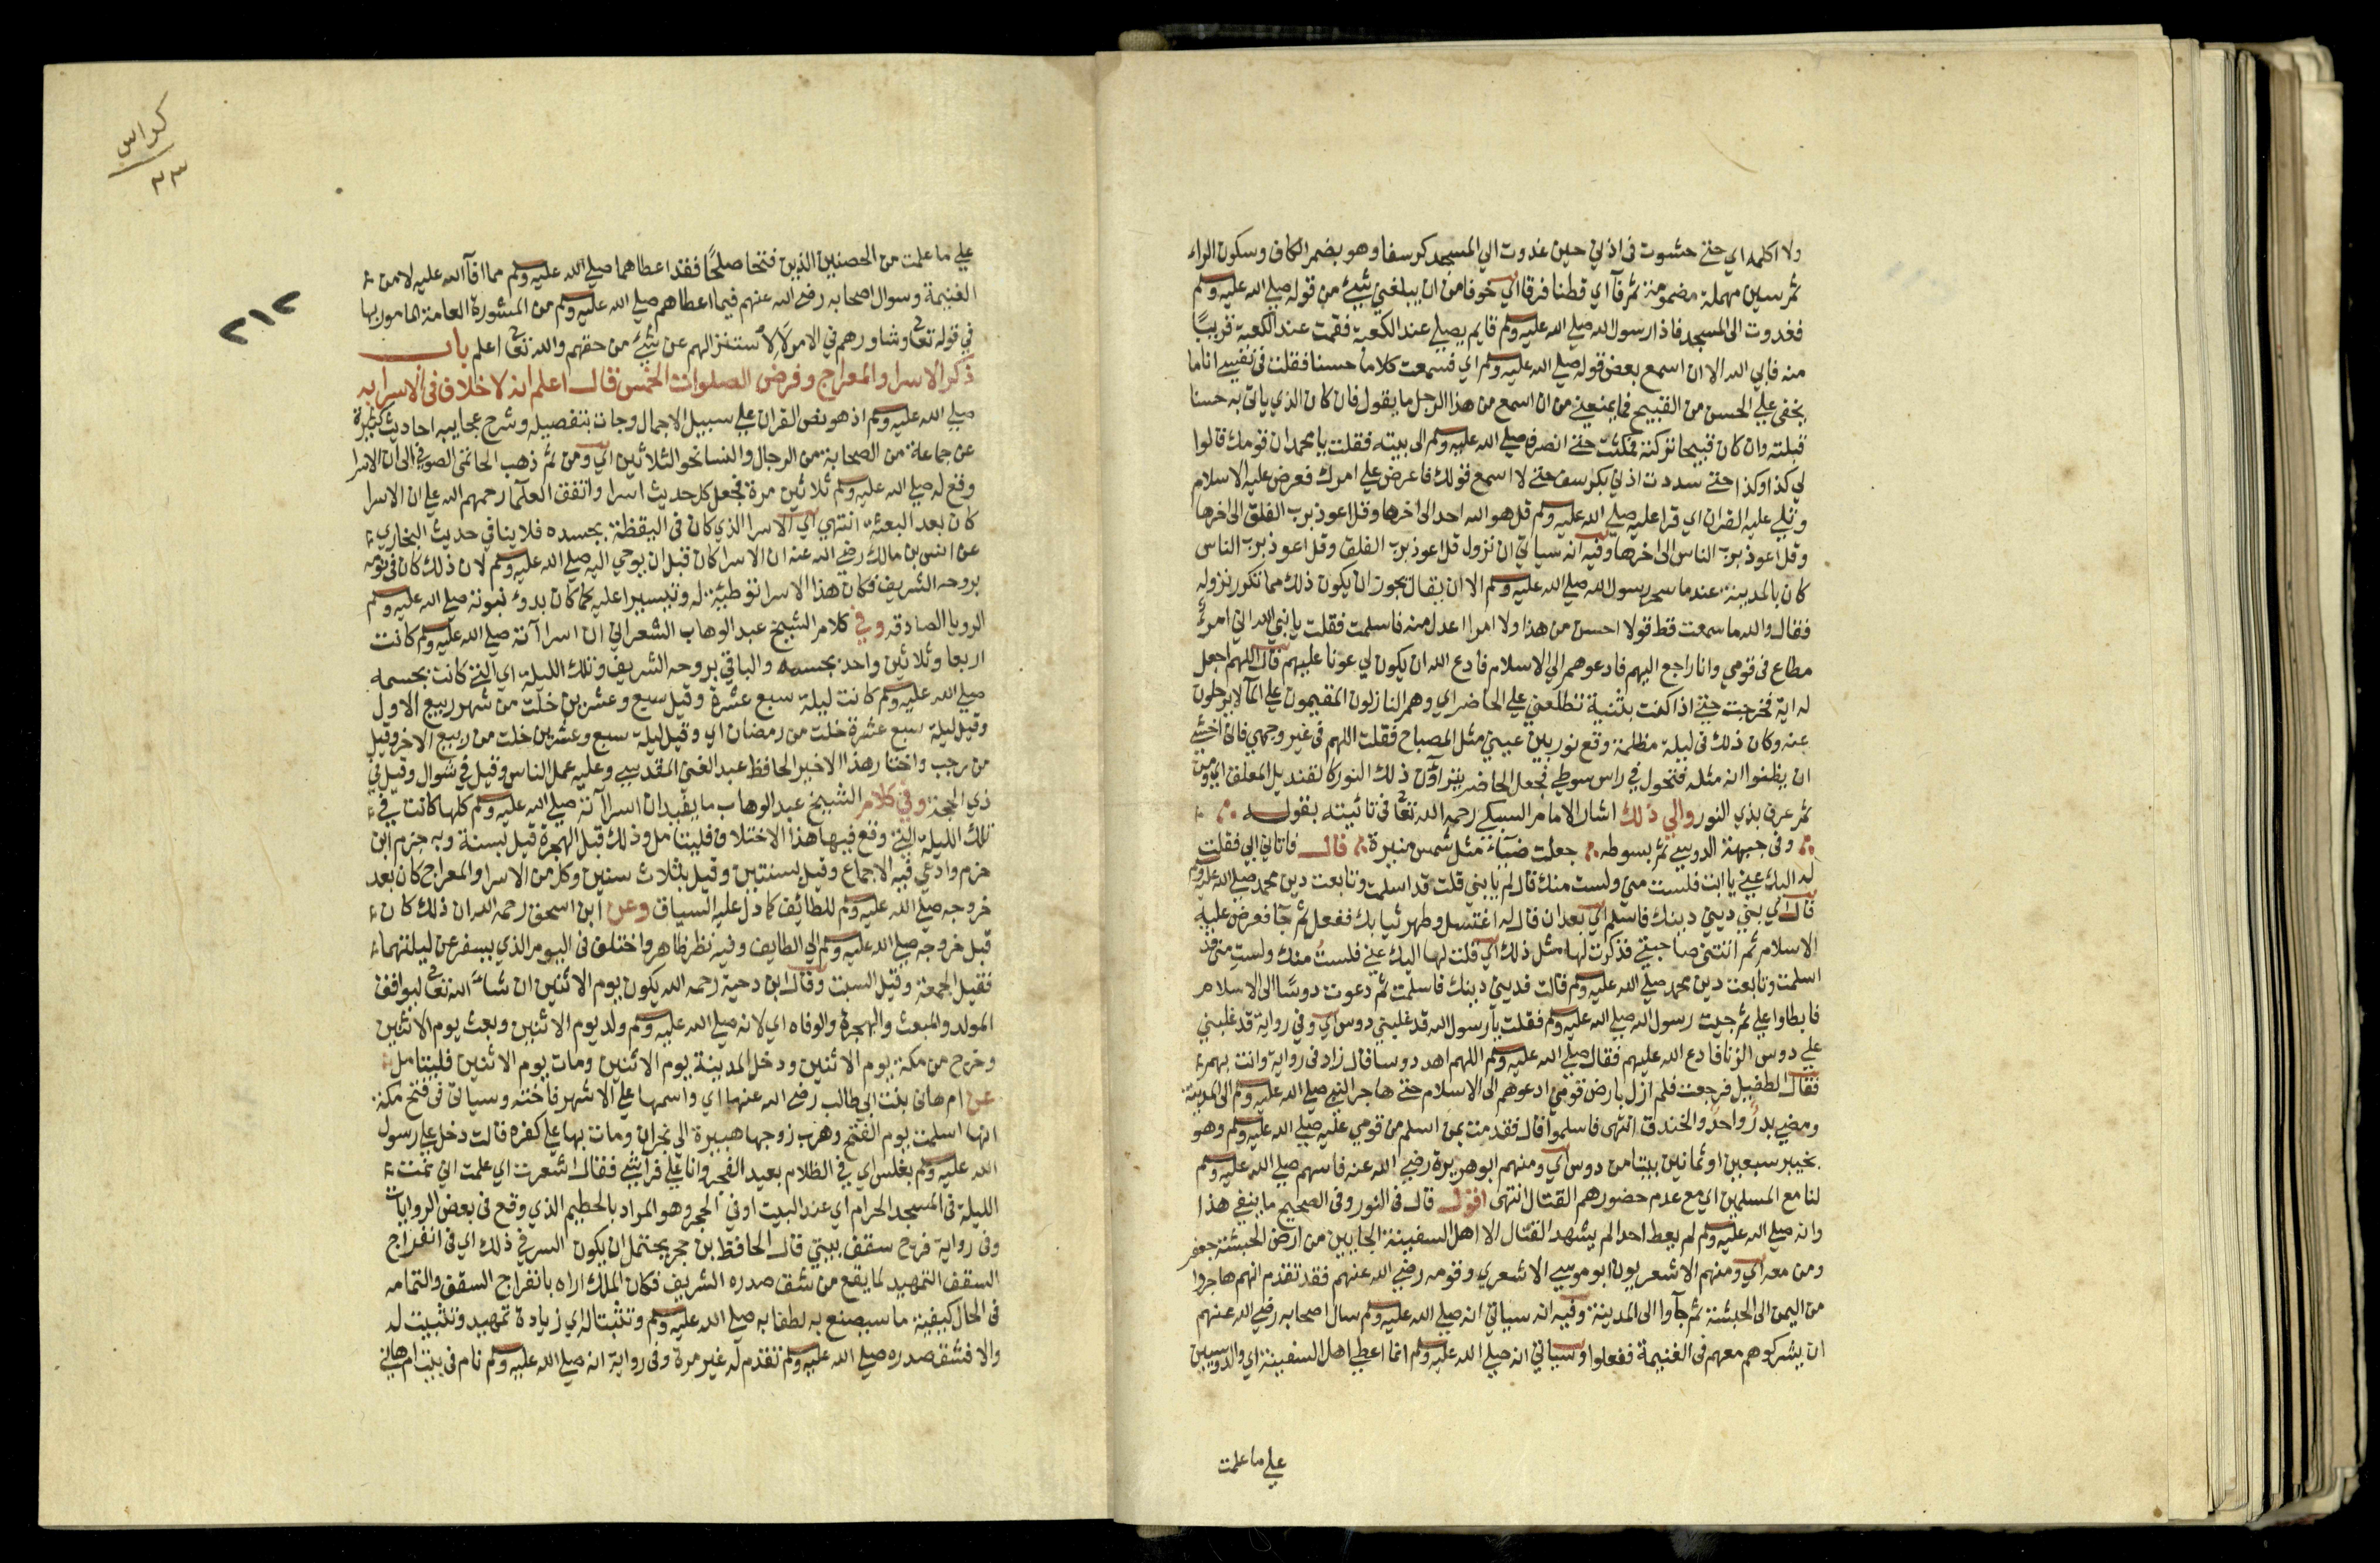 ولا اكلمه اي حتى حشوت في اذني حين غدوت الي المسجد كرسفا وهو بضم الكاف وسكون الراء
ثم سين مهملة مضمومة ثم فآ اي قطنا فرقا اي خوفا من ان يبلغني شئ من قوله صلي الله عليه وسلم
فغدوت الي المسجد فاذا رسول الله صلي الله عليه وسلم قايم يصلي عند الكعبة فقمت عند الكعبة قريبًا
منه فابي الله الا ان اسمع بعض قوله صلي الله عليه وسلم اي فسمعت كلاما حسنا فقلت في نفسي انا ما
يخفي علي الحسن من القبيح فما يمنعني من ان اسمع من هذا الرجل ما يقول فان كان الذي ياتي به حسنا
قبلته وان كان قبيحا تركته فمكثت حتي انصرف صلي الله عليه وسلم الي بيته فقلت يا محمد ان قومك قالوا
لي كذا وكذا حتي سددت اذني بكرسف حتي لا اسمع قولك فاعرض علي امرك فعرض عليه الاسلام
وتلي عليه القران اي قرا عليه صلي الله عليه وسلم قل هو الله احد الي اخرها وقل اعوذ برب الفلق الي اخرها
وقل اعوذ برب الناس الي اخرها وفيه انه سياتي ان نزول قل اعوذ برب الفلق وقل اعوذ برب الناس
كان بالمدينة عند ما سحر رسول الله صلي الله عليه وسلم الا ان يقال يجوز ان يكون ذلك مما تكرر نزوله
فقال والله ما سمعت قط قولا احسن من هذا ولا امرا اعدل منه فاسلمت فقلت يا نبي الله اني امرؤ
مطاع في قومي وانا راجع اليهم فادعوهم الي الاسلام فادع الله ان يكون لي عونا عليهم قال اللهم اجعل
له اية فخرجت حتي اذا كنت بثنية تطلعني علي الحاضر اي وهم النازلون المقيمون علي المآ لا يرحلون
عنه وكان ذلك في ليلة مظلمة وقع نور بين عيني مثل المصباح فقلت اللهم في غير وجهي فاني اخشي
ان يظنوا انه مثله فتحول في راس سوطي فجعل الحاضر يتراؤن ذلك النور كالقنديل المعلق اي ومن
ثم عرف بذي النور والي ذلك اشار الامام السبكي رحمه الله تعالى في تائيته بقوله
وفي جبهة الدوسي ثم بسوطه جعلت ضيآء مثل شمس منيرة قال فاتاني ابي فقلت
له اليك عني يا ابت فلست مني ولست منك قال لم يا بني قلت قد اسلمت وتابعت دين محمد صلي الله عليه وسلم
قال اي بني ديني دينك فاسلم اي بعد ان قال له اغتسل وطهر ثيابك ففعل ثم جآ فعرض عليه
الاسلام ثم اتتني صاحبتي فذكرت لها مثل ذلك اي قلت لها اليك عني فلست منك ولست مني قد
اسلمت وتابعت دين محمد صلي الله عليه وسلم قالت فديني دينك فاسلمت ثم دعوت دوسًا الي الاسلام
فابطاوا علي ثم جيت رسول الله صلي الله عليه وسلم فقلت يا رسول الله قد غلبني دوس اي وفي رواية قد غلبني
علي دوس الزنا فادع الله عليهم فقال صلي الله عليه وسلم اللهم اهد دوسا قال زاد في رواية وائت بهم
فقال الطفيل فرجعت فلم ازل بارض قومي ادعوهم الي الاسلام حتي هاجر النبي صلي الله عليه وسلم الي المدينة
ومضي بدر واحد والخندق انتهي فاسلموا قال فقدمت بمن اسلم من قومي عليه صلي الله عليه وسلم وهو
بخيبر سبعين او ثمانين بيتا من دوس اي ومنهم ابو هريرة رضي الله عنه فاسهم صلي الله عليه وسلم
لنا مع المسلمين اي مع عدم حضورهم القتال انتهي اقول قال في النور وفي الصحيح ما ينفي هذا
وانه صلي الله عليه وسلم لم يعط احدا لم يشهد القتال الا اهل السفينة الجايين من ارض الحبشة جعفر
ومن معه اي ومنهم الاشعريون ابو موسي الاشعري وقومه رضي الله عنهم فقد تقدم انهم هاجروا
من اليمن الي الحبشة ثم جآوا الي المدينة وفيه انه سياتي انه صلي الله عليه وسلم سال اصحابه رضي الله عنهم
ان يشركوهم معهم في الغنيمة ففعلوا وسياتي انه صلي الله عليه وسلم انما اعطي اهل السفينة اي والدوسيين
علي ما علمت
كراس
٣٣
٢١٢
علي ما علمت من الحصنين الذين فتحا صلحًا فقد اعطاهما صلي الله عليه وسلم مما افآ الله عليه لا من
الغنيمة وسوال اصحابه رضي الله عنهم فيما اعطاهم صلي الله عليه وسلم من المشورة العامة المامور بها
في قوله تعالى وشاورهم في الامر لا لاستنزالهم عن شئ من حقهم والله تعالى اعلم باب
ذكر الاسرا والمعراج وفرض الصلوات الخمس قال اعلم انه لا خلاف في الاسرا به
صلي الله عليه وسلم اذ هو نص القران علي سبيل الاجمال وجات بتفصيله وشرح عجايبه احاديث كثيرة
عن جماعة من الصحابة من الرجال والنسا نحو الثلاثين اي ومن ثم ذهب الحاتمي الصوفي الي ان الاسرا
وقع له صلي الله عليه وسلم ثلاثين مرة فجعل كل حديث اسرا واتفق العلمآ رحمهم الله علي ان الاسرا
كان بعد البعثة انتهي اي الاسرا الذي كان في اليقظة بجسده فلا ينافي حديث البخاري
عن انس بن مالك رضي الله عنه ان الاسرا كان قبل ان يوحي اليه صلي الله عليه وسلم لان ذلك كان في نومه
بروحه الشريف فكان هذا الاسرا توطئة له وتيسيرا عليه كما كان بدؤ نبوته صلي الله عليه وسلم
الرويا الصادقه وفي كلام الشيخ عبد الوهاب الشعراني ان اسراآته صلي الله عليه وسلم كانت
اربعا وثلاثين واحد بجسمه والباقي بروحه الشريف وتلك الليلة اي التي كانت بجسمه
صلي الله عليه وسلم كانت ليلة سبع عشرة وقيل سبع وعشرين خلت من شهر ربيع الاول
وقيل ليلة سبع عشرة خلت من رمضان اي وقيل ليلة سبع وعشرين خلت من ربيع الاخر وقيل
من رجب واختار هذا الاخير الحافظ عبد الغني المقدسي وعليه عمل الناس وقيل في شوال وقيل في
ذي الحجة وفي كلام الشيخ عبد الوهاب ما يفيد ان اسراآته صلي الله عليه وسلم كلها كانت في
تلك الليلة التي وقع فيها هذا الاختلاف فليتامل وذلك قبل الهجرة قيل بسنة وبه جزم ابن
حزم وادعي فيه الاجماع وقيل بسنتين وقيل بثلاث سنين وكل من الاسرا والمعراج كان بعد
خروجه صلي الله عليه وسلم للطائف كما دل عليه السياق وعن ابن اسحق رحمه الله ان ذلك كان
قبل خروجه صلي الله عليه وسلم الي الطايف وفيه نظر ظاهر واختلف في اليوم الذي يسفر عن ليلتهما
فقيل الجمعة وقيل السبت وقال ابن دحية رحمه الله يكون يوم الاثنين ان شآء الله تعالى ليوافق
المولد والمبعث والهجرة والوفاه اي لانه صلي الله عليه وسلم ولد يوم الاثنين وبعث يوم الاثنين
وخرج من مكة يوم الاثنين ودخل المدينة يوم الاثنين ومات يوم الاثنين فليتامل
عن ام هاني بنت ابي طالب رضي الله عنها اي واسمها علي الاشهر فاخته وسياتي في فتح مكة
انها اسلمت يوم الفتح وهرب زوجها هبيرة الي نجران ومات بها علي كفره قالت دخل علي رسول
الله عليه وسلم بغلس اي في الظلام بعيد الفجر وانا علي فراشي فقال اشعرت اي علمت اني نمت
الليلة في المسجد الحرام اي عند البيت او في الحجر وهو المراد بالحطيم الذي وقع في بعض الروايات
وفي رواية فرج سقف بيتي قال الحافظ بن حجر يحتمل ان يكون السر في ذلك اي في انفراج
السقف التمهيد لما يقع من شق صدره الشريف فكان الملك اراه بانفراج السقف والتئامه
في الحال كيفية ما سيصنع به لطفا به صلي الله عليه وسلم وتثبتا له اي زيادة تمهيد وتثبيت له
والا فشق صدره صلي الله عليه وسلم تقدم له غير مرة وفي رواية انه صلي الله عليه وسلم نام في بيت ام هاني